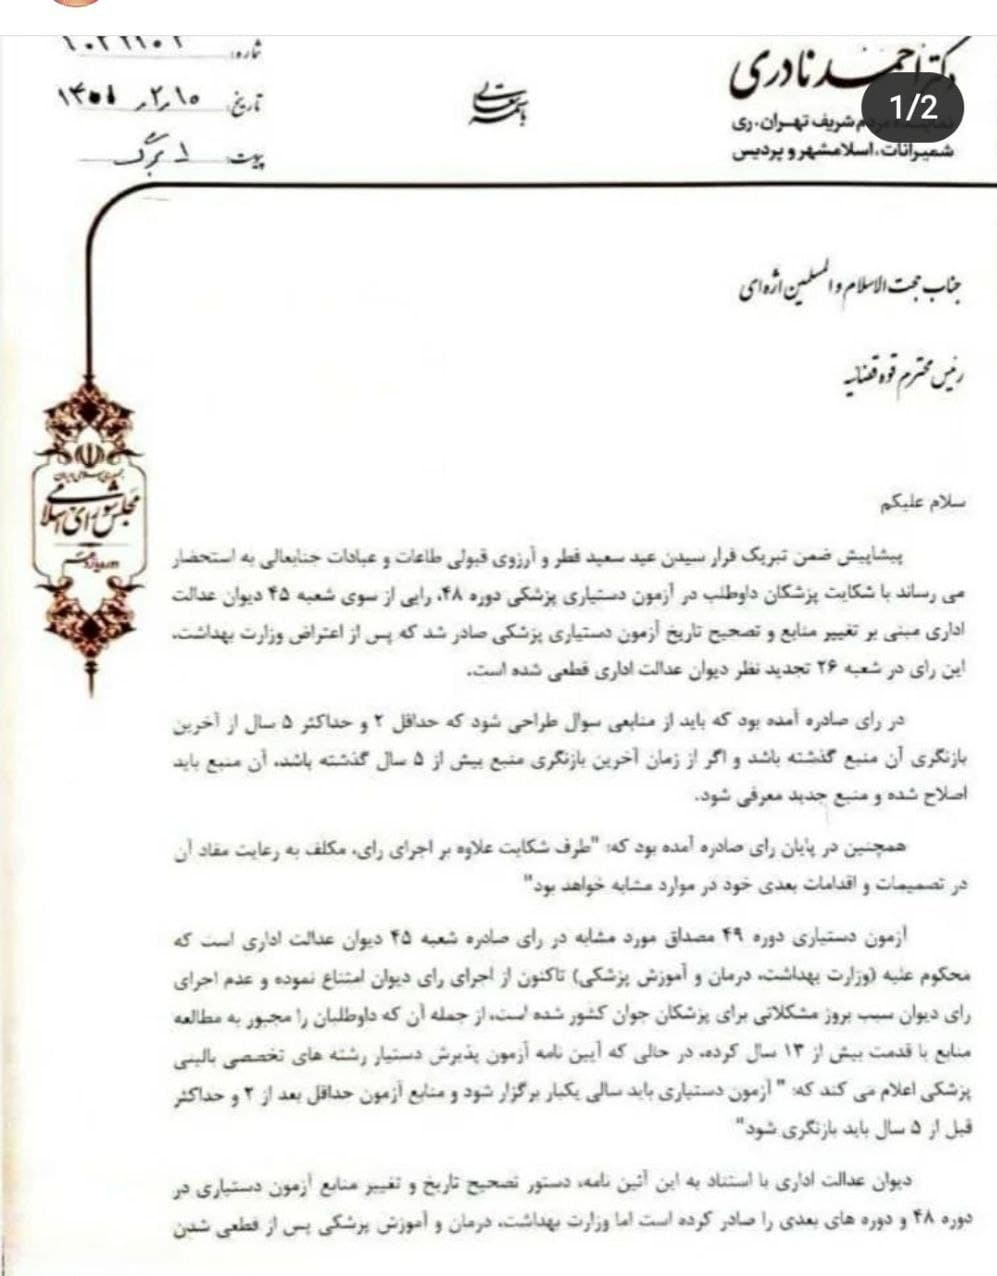 دکتر احمد نادری
نماینده مردم شریف تهران، ری
شمیرانات، اسلامشهر و پردیس
1/2
باسمه تعالی
شماره:
تاریخ: ۱۴۰۱/۲/۱۰
پیوست: ۱ برگ
جناب حجت الاسلام و المسلمین اژه‌ای
رئیس محترم قوه قضائیه
جمهوری اسلامی ایران
مجلس شورای اسلامی
دوره یازدهم
سلام علیکم
پیشاپیش ضمن تبریک فرار سیدن عید سعید فطر و آرزوی قبولی طاعات و عبادات جنابعالی به استحضار
می رساند با شکایت پزشکان داوطلب در آزمون دستیاری پزشکی دوره ۴۸، رایی از سوی شعبه ۴۵ دیوان عدالت
اداری مبنی بر تغییر منابع و تصحیح تاریخ آزمون دستیاری پزشکی صادر شد که پس از اعتراض وزارت بهداشت،
این رای در شعبه ۲۶ تجدید نظر دیوان عدالت اداری قطعی شده است.
در رای صادره آمده بود که باید از منابعی سوال طراحی شود که حداقل ۲ و حداکثر ۵ سال از آخرین
بازنگری آن منبع گذشته باشد و اگر از زمان آخرین بازنگری منبع بیش از ۵ سال گذشته باشد، آن منبع باید
اصلاح شده و منبع جدید معرفی شود.
همچنین در پایان رای صادره آمده بود که: "طرف شکایت علاوه بر اجرای رای، مکلف به رعایت مفاد آن
در تصمیمات و اقدامات بعدی خود در موارد مشابه خواهد بود"
آزمون دستیاری دوره ۴۹ مصداق مورد مشابه در رای صادره شعبه ۴۵ دیوان عدالت اداری است که
محکوم علیه (وزارت بهداشت، درمان و آموزش پزشکی) تاکنون از اجرای رای دیوان امتناع نموده و عدم اجرای
رای دیوان سبب بروز مشکلاتی برای پزشکان جوان کشور شده است، از جمله آن که داوطلبان را مجبور به مطالعه
منابع با قدمت بیش از ۱۳ سال کرده، در حالی که آیین نامه آزمون پذیرش دستیار رشته های تخصصی بالینی
پزشکی اعلام می کند که: " آزمون دستیاری باید سالی یکبار برگزار شود و منابع آزمون حداقل بعد از ۲ و حداکثر
قبل از ۵ سال باید بازنگری شود"
دیوان عدالت اداری با استناد به این آئین نامه، دستور تصحیح تاریخ و تغییر منابع آزمون دستیاری در
دوره ۴۸ و دوره های بعدی را صادر کرده است اما وزارت بهداشت، درمان و آموزش پزشکی پس از قطعی شدن